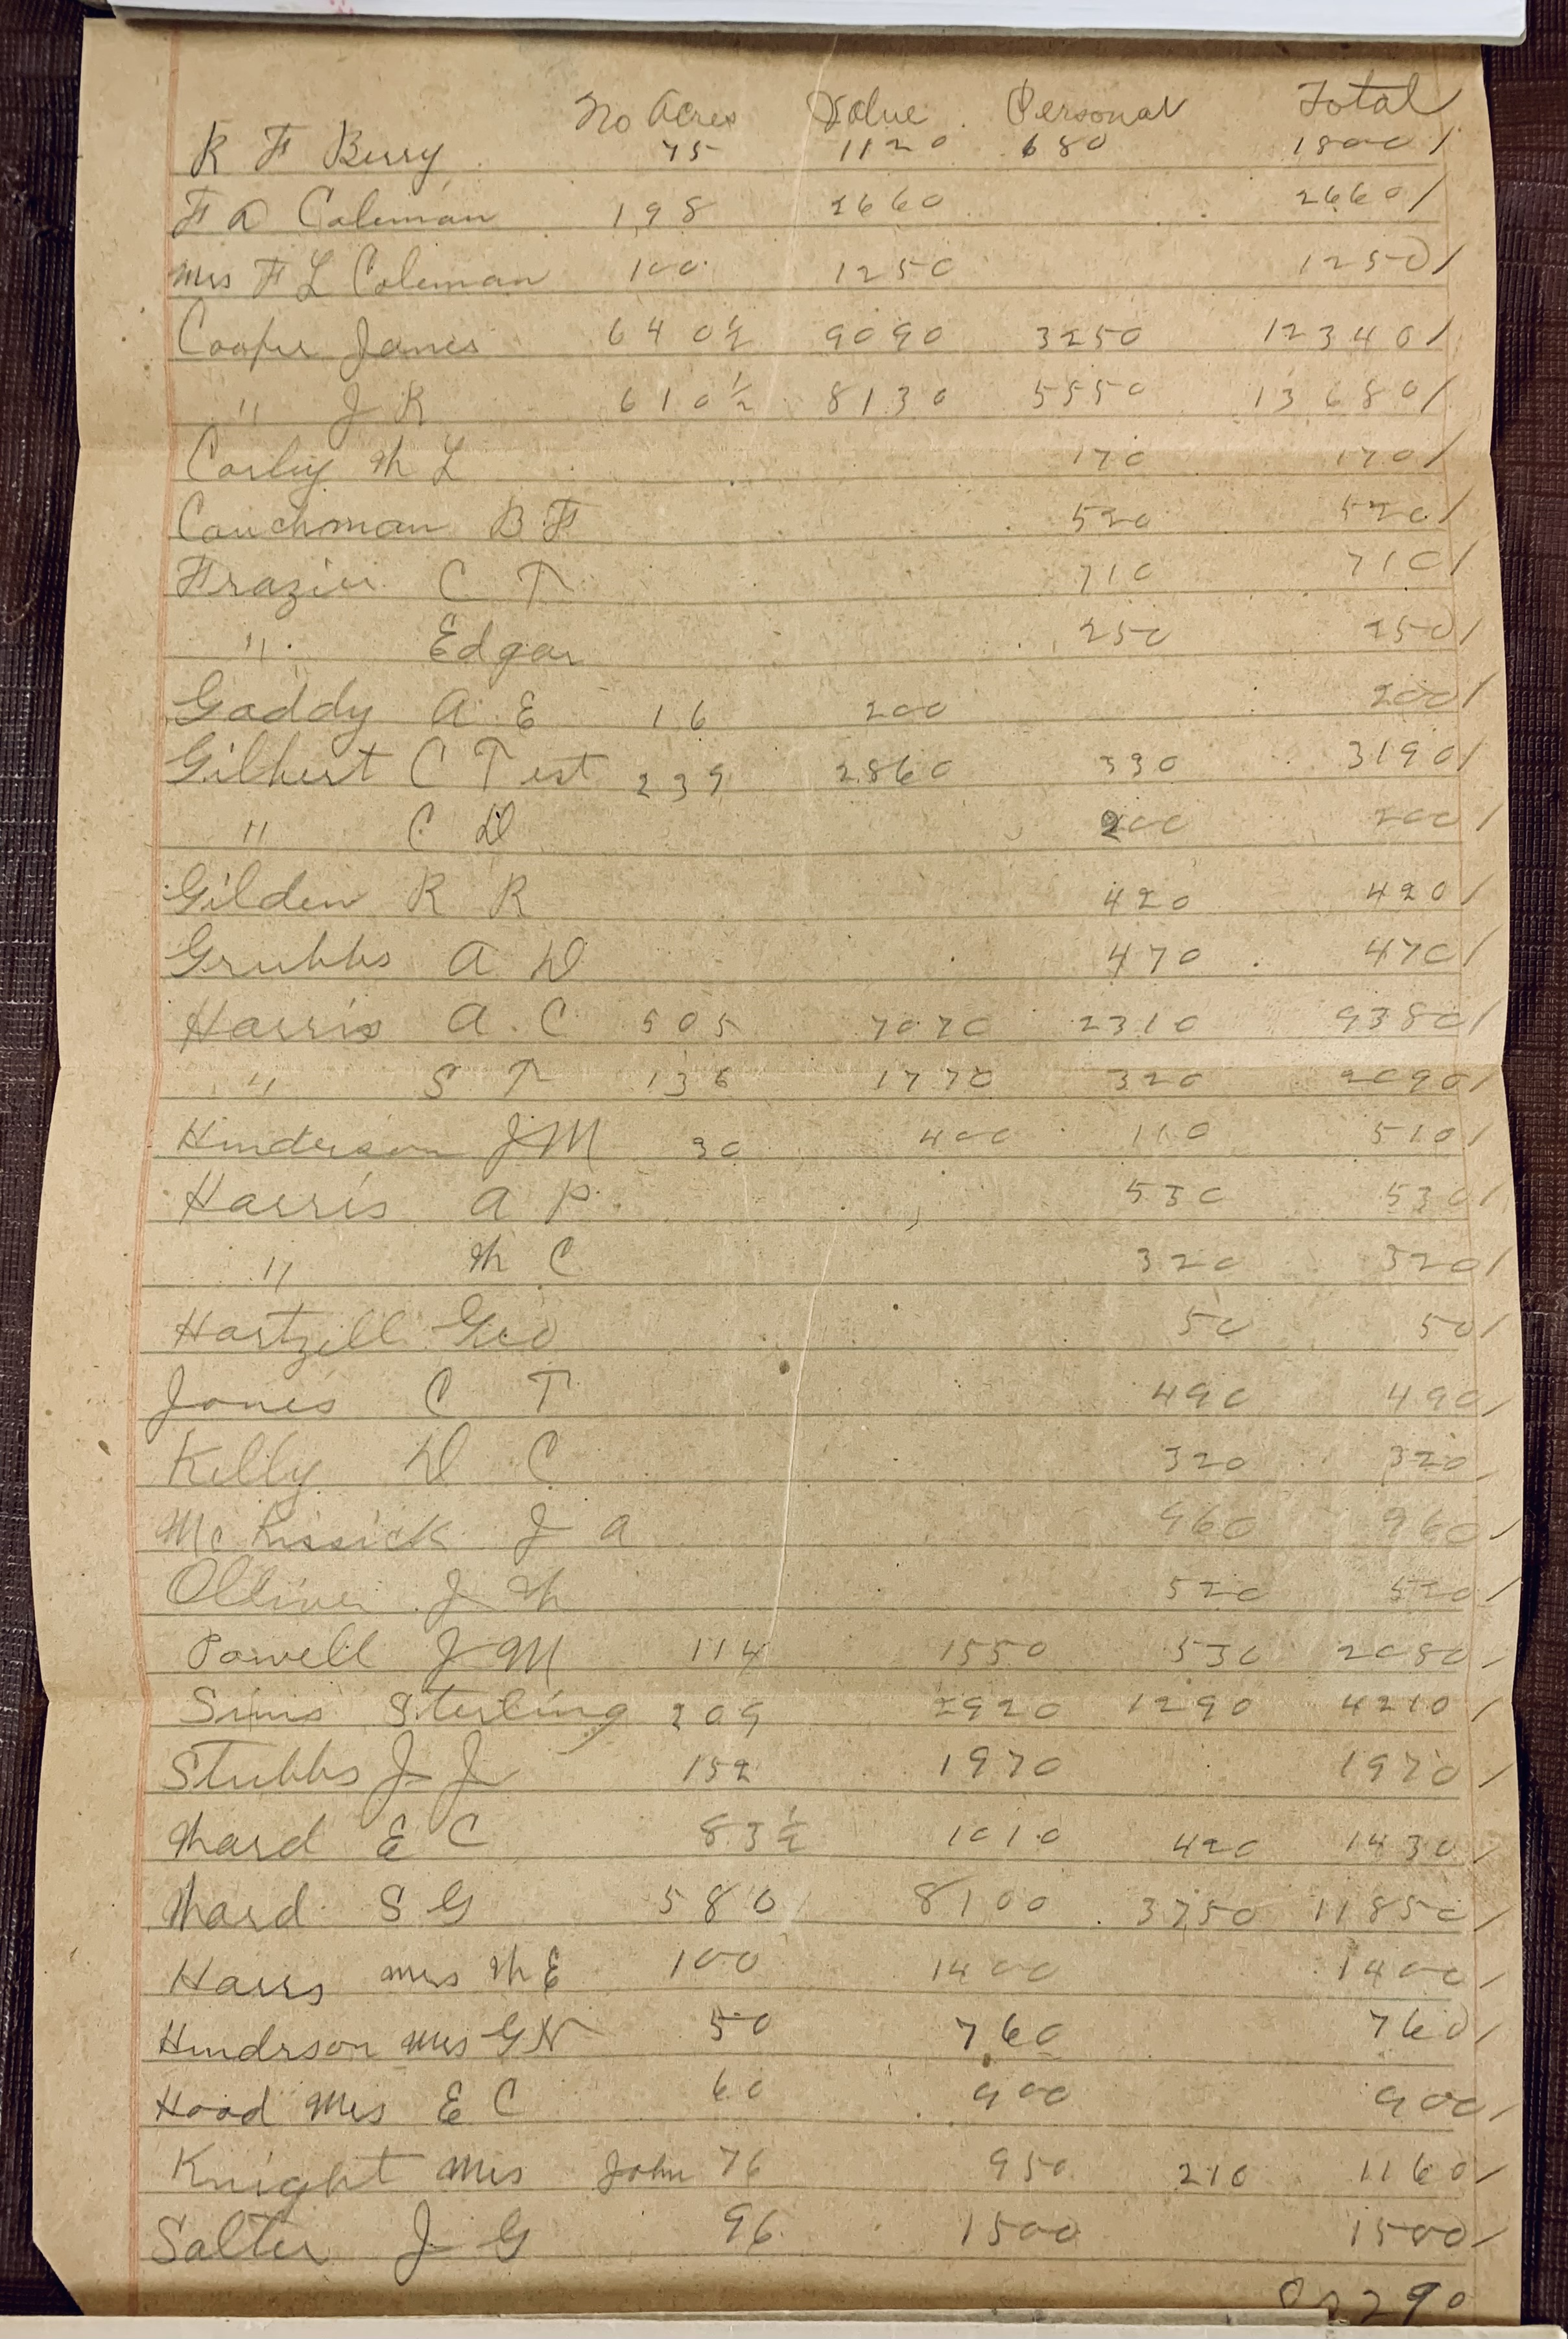 No Acres Value Personal Total
R F Berry 75 1120 680 1800/
F A Coleman 198 2660 2660/
Mrs F L Coleman 100 1250 1250/
Cooper James 640½ 9090 3250 12340/
" J R 610½ 8130 5550 13680/
Corley W L 170 170/
Couchman B F 520 520/
Frazier C T 710 710/
" Edgar 250 250/
Gaddy A E 16 200 200/
Gilbert C T est 239 2860 330 3190/
" C D 200 200/
Gilden R R 420 420/
Grubbs A D 470 470/
Harris A. C 505 7070 2310 9380/
" S T 136 1770 320 2090/
Hinderson J M 30 400 110 510/
Harris A P. 530 530/
" W C 320 320/
Hartzell Geo 50 50/
Jones C T 490 490/
Kelly D C 320 320
McKissick J A 960 960/
Olliver J W 520 520/
Powell J M 114 1550 530 2080/
Sims Sterling 209 2920 1290 4210/
Stubbs J J 152 1970 1970/
Ward E C 83½ 1010 420 1430/
Ward S G 580 8100 3750 11850/
Harrs Mrs W E 100 1400 1400/
Hindrson Mrs G N 50 760 760/
Hood Mrs E C 60 900 900/
Knight Mrs John 76 950 210 1160/
Salter J G 96 1500 1500/